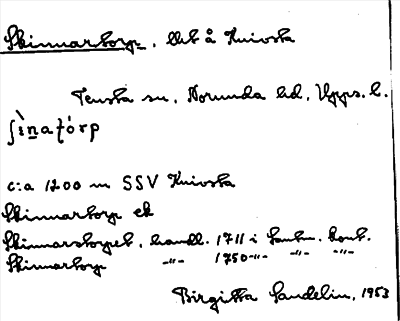 Skinnartorp, lht å Knivsta
Tensta sn, Norunda hd, Upps. l.
ʃìnatórp
c:a 1200 m SSV Knivsta
Skinnartorp ek
Skinnarstorpet, handl. 1711 i Lantm. kont.
Skinnartorp -"- 1750 -"- -"- -"-
Birgitta Sandelin, 1953